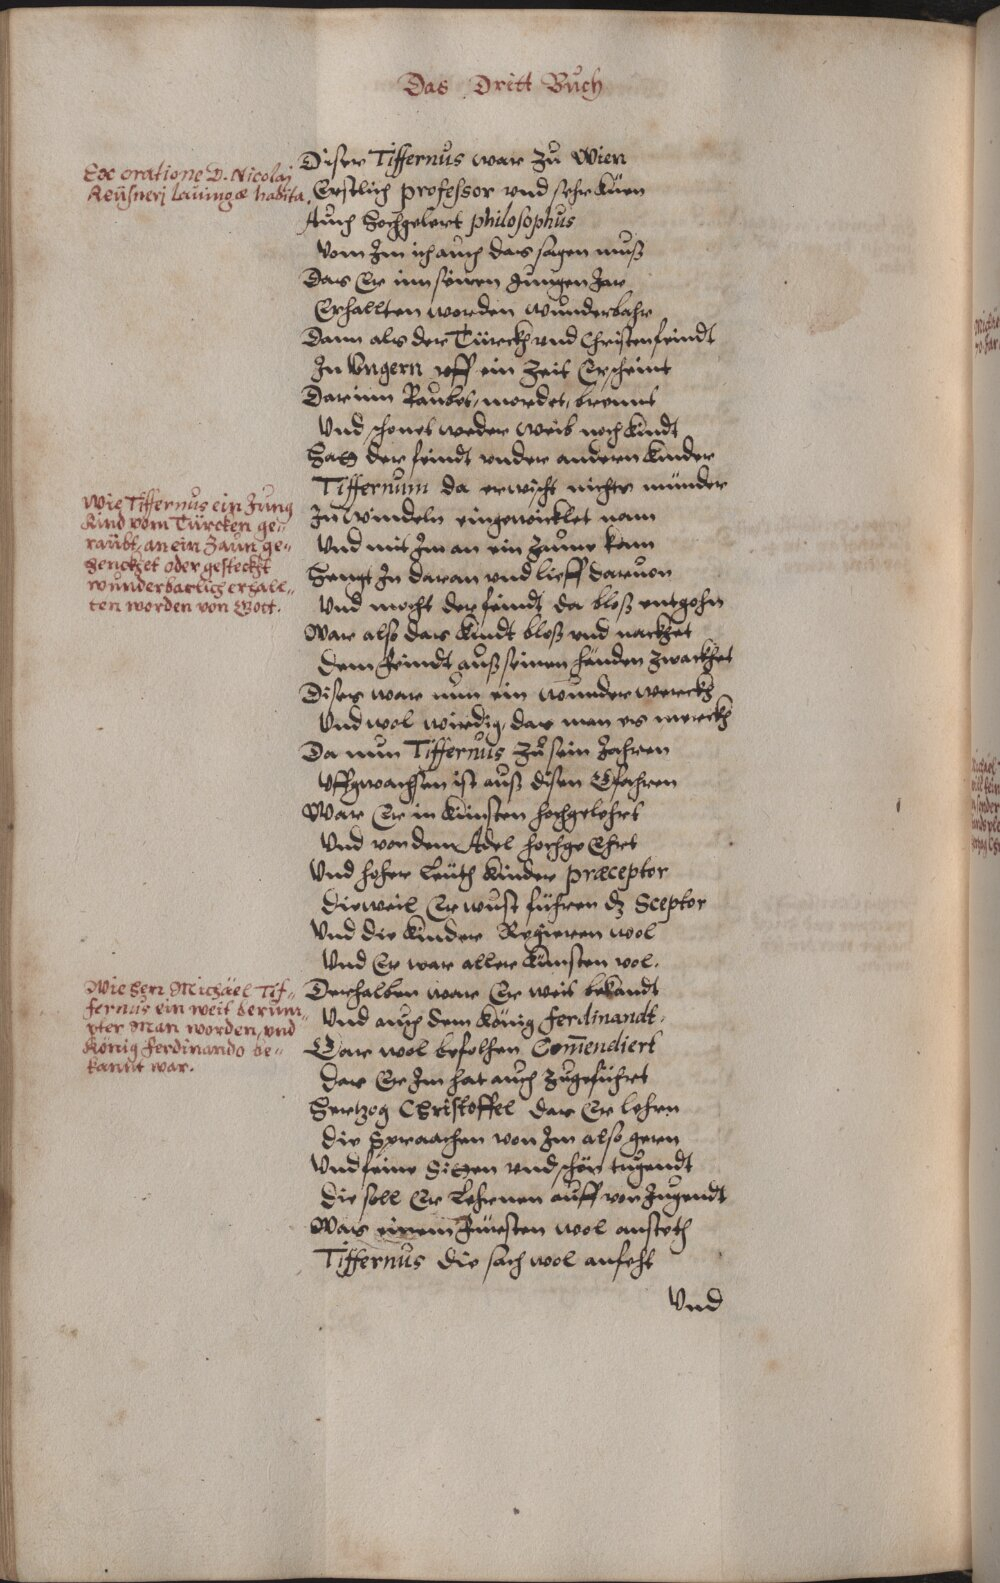 Das Dritt Buch
Ex oratione D. Nicolaj
Reüsnerj Lauingæ habita.
Diser Tiffernus war zu Wien
Erstlich professor vnd sehr küen
Auch hochgelert philosophus
Vom Im ich auch das sagen muß
Das Er inn seinen Jungen Jar
Erhallten worden wunderbahr
Dann als der Türckh vnd Christenfeindt
In Vngern vff ein Zeit Erscheint
Darinn Raubet, mordet, brennt
Vnd schonet weder weib noch kindt
Hatt der feindt vnder andern kinder
Wie Tiffernus ein Jung
Kind vom Türcken ge„
raubt, an ein Zaun ge„
henckhet oder gesteckht
wunderbarlich erhall„
ten worden von Gott.
Tiffernum da erwischt nichts münder
In windeln eingewicklet nam
Vnd mit Im an ein Zaune kam
Hengt In daran vnd lieff daruon
Vnd mocht der feindt da bloß entgohn
War also das kindt bloß vnd nackhet
Dem feindt auß seinen händen zwackhet
Dises war nun ein wunderwerckh
Vnd wol wirdig, das man es merckh
Da nun Tiffernus zu sein Jahren
Vffgwachsen ist auß disen Gfahren
War Er in künsten hochgelehrt
Vnd von dem Adel hochgeEhrt
Vnd hoher Leüth kinder præceptor
Dieweil Er wust führen dz Sceptor
Vnd die kinder Regieren wol
Vnd Er war aller künsten vol.
Wie herr Michael Tif„
fernus ein weit berüm„
pter Man worden, vnd
König Ferdinando be„
kannt war.
Derhalben war Er weit bekandt
Vnd auch dem König Ferdinandt.
Gar wol befolhen Com̄endiert
Das Er Im hat auch zugeführt
Hertzog Christoffel das Er lehrn
Die Spraachen von Im also gern
Vnd feine Sitten vnd schön tugendt
Die soll Er Lehrnen auff von Jugendt
Was einem Fürsten wol anstoth
Tiffernus die sach wol anfeht
Vnd